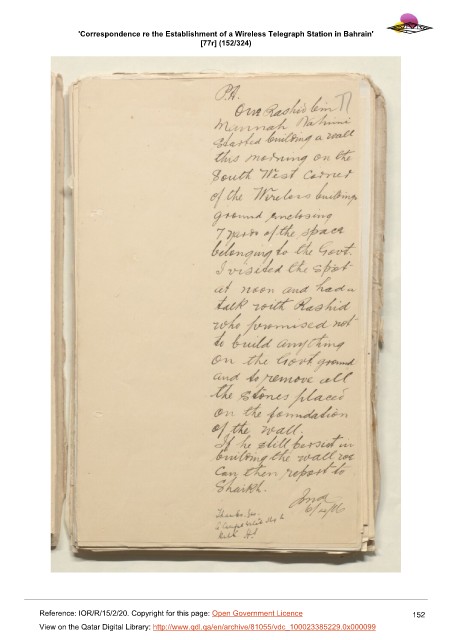 'Correspondence re the Establishment of a Wireless Telegraph Station in Bahrain'
[77r] (152/324)
P.A.
One Rashid bin
Mannah Nahimi
started building a wall
this morning on the
South West Corner
of the Wireless buildings
ground enclosing
7 of the space
belonging to the Govt.
I visited the spot
at noon and had a
talk with Rashid
who promised not
to build anything
on the Govt ground
and to remove all
the stones placed
on the foundation
of the wall.
If he still persist in
building the wall we
can then report to
Shaikh.
Thanks.
Reference: IOR/R/15/2/20. Copyright for this page: Open Government Licence
View on the Qatar Digital Library: http://www.qdl.qa/en/archive/81055/vdc_100023385229.0x000099
152